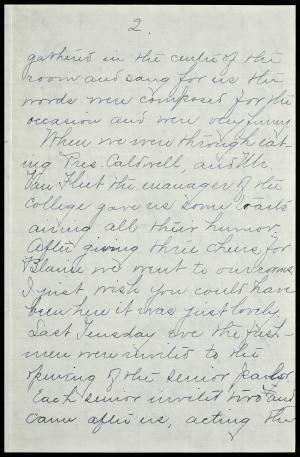 2.
gathered in the centre of the
room and sang for us the
words were composed for the
occasion and were very funny
When we were through eat-
ing Pres. Caldwell, and Mr.
Van Fleet the manager of the
College gave us some toasts
airing all their humor.
After giving three cheers for
we went to our rooms
I just wish you could have
been here it was just lovely.
Last Tuesday Eve the fresh-
men were invited to the
opening of the senior parlor.
Each senior invited two and
came after us, acting the